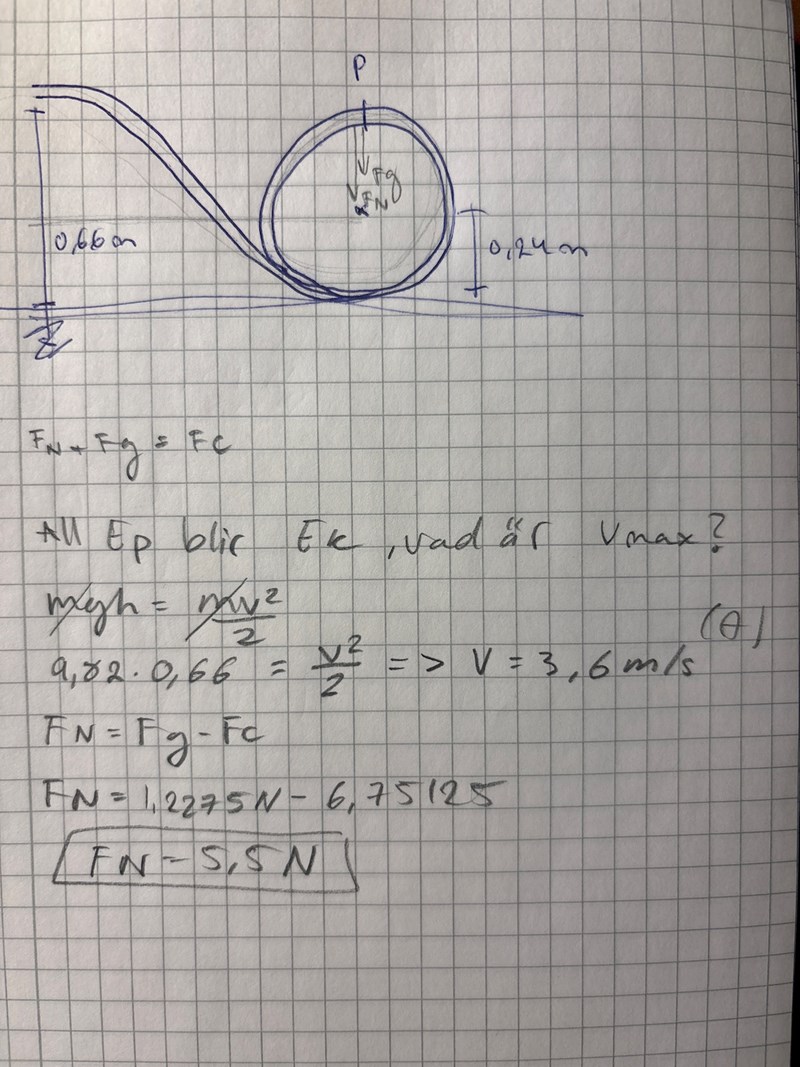 P
Fg
FN
0,66m
0,24m
FN + Fg = Fc
All Ep blir Ek, vad är Vmax?
mgh = mv²/2
(A)
9,82 · 0,66 = v²/2 => V = 3,6 m/s
FN = Fg - Fc
FN = 1,2275N - 6,75125
FN = 5,5N